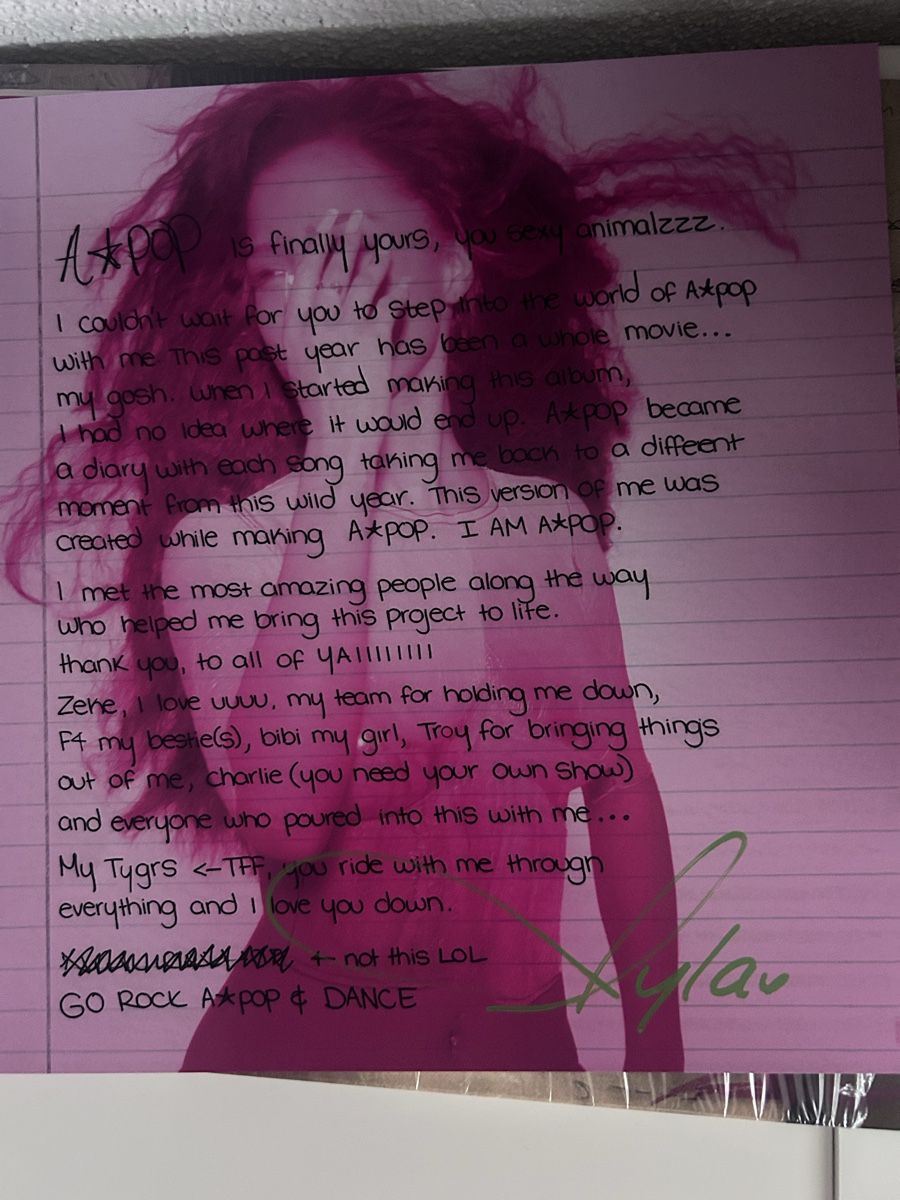 A★POP is finally yours, you sexy animalzzz.
I couldn't wait for you to step into the world of A★pop
with me. This past year has been a whole movie...
my gosh. When I started making this album,
I had no idea where it would end up. A★pop became
a diary with each song taking me back to a diffeent
moment from this wild year. This version of me was
created while making A★POP. I AM A★POP.
I met the most amazing people along the way
who helped me bring this project to life.
thank you, to all of YAIIIIIIII
Zeke, I love uuuu, my team for holding me down,
F4 my bestie(s), bibi my girl, Troy for bringing things
out of me, Charlie (you need your own show)
and everyone who poured into this with me...
My Tygrs <-TFF, you ride with me through
everything and I love you down.
← not this LOL
GO ROCK A★POP & DANCE